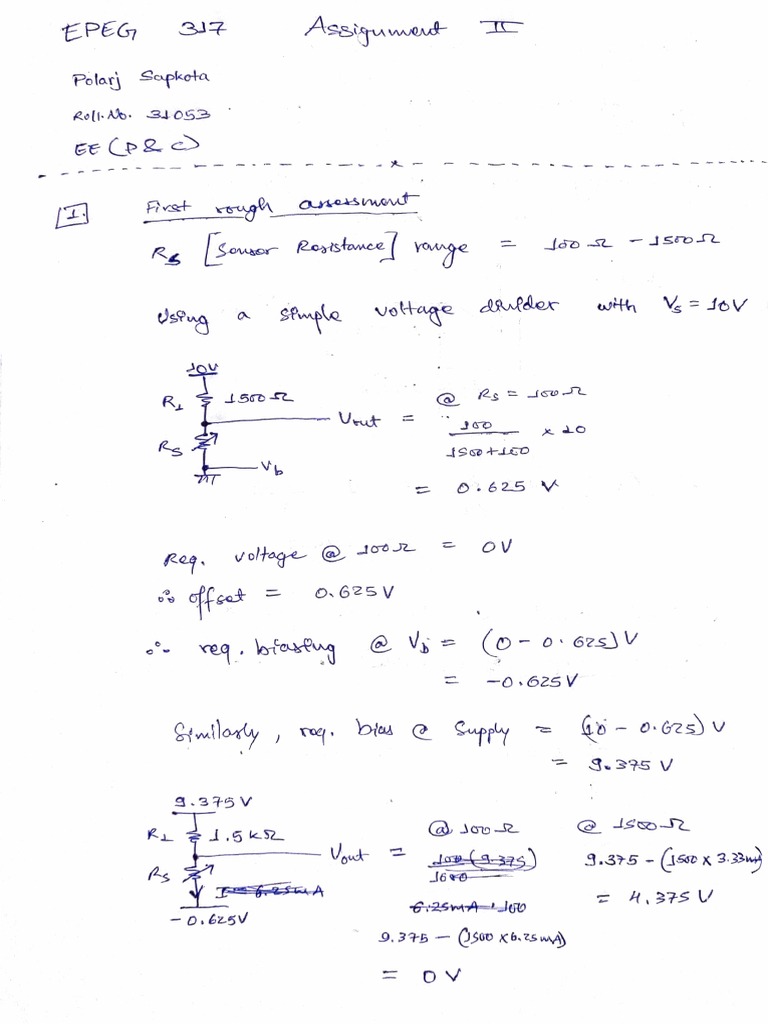 EPEG 317 Assignment II
Polarj Sapkota
Roll.No. 31053
EE (P & C)
1. First rough assessment
Rs [Sensor Resistance] range = 100Ω - 1500Ω
Using a simple voltage divider with Vs = 10V
10V
R1 1500Ω
Rs
Vb
Vout = @ Rs = 100Ω
100 / 1500+100 × 10
= 0.625 V
Req. voltage @ 100Ω = 0V
∴ offset = 0.625V
∴ req. biasing @ Vb = (0 - 0.625)V
= -0.625V
Similarly, req. bias @ supply = (10 - 0.625) V
= 9.375 V
9.375 V
R1 1.5kΩ
Rs
I = 6.25mA
-0.625V
Vout = @ 100Ω
100 (9.375) / 1600
6.25mA · 100
9.375 - (1500 × 6.25mA)
= 0V
@ 1500Ω
9.375 - (1500 × 3.33mA)
= 4.375 V